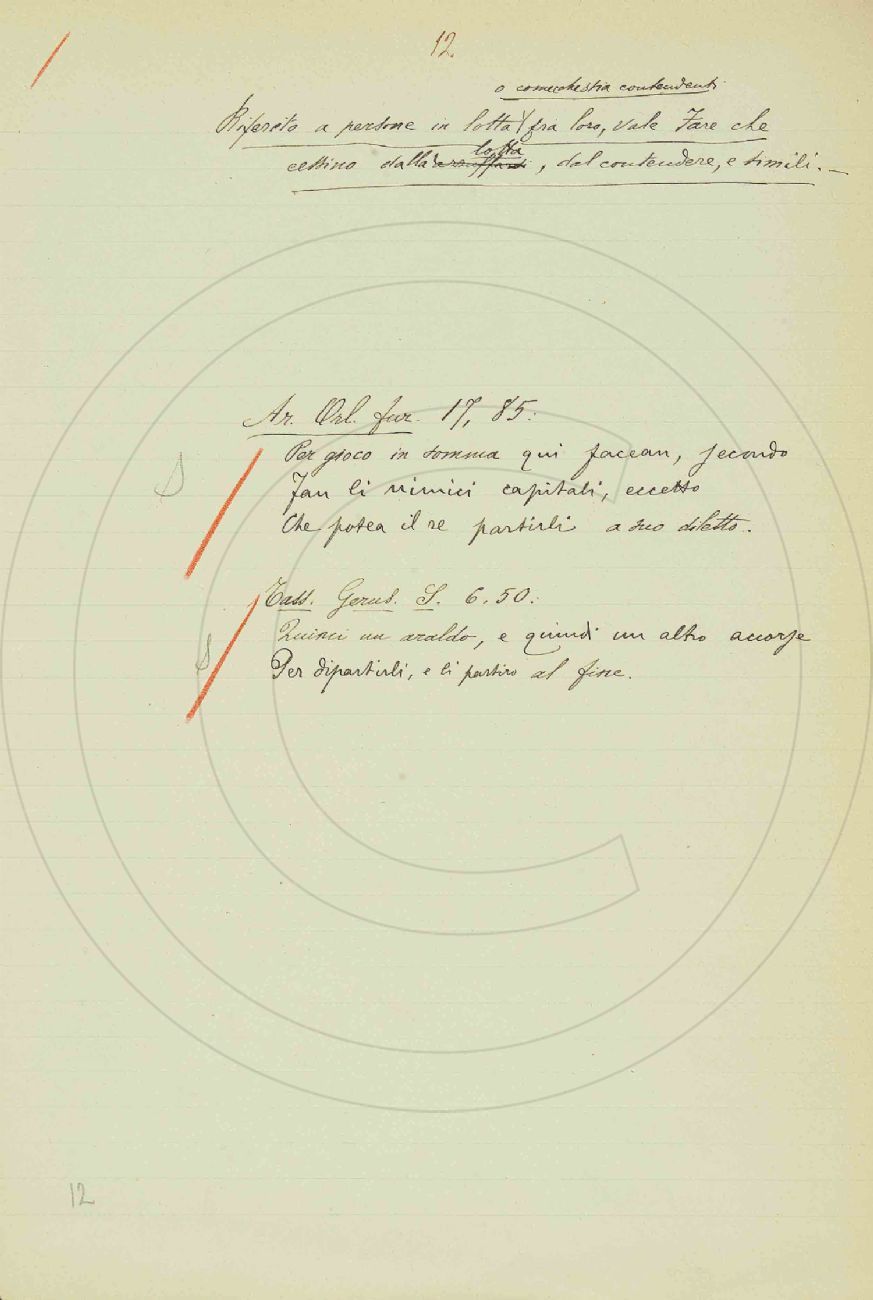 12
o comechestia contendenti
Riferito a persone in lotta fra loro, vale Fare che
lotta
cessino dalla , dal contendere, e simili. _
Ar. Orl. fur. 17, 85:
Per gioco in somma qui facean, secondo
Fan li nimici capitali, eccetto
Che potea il re partirli a suo diletto.
S
Tass. Gerus. S. 6. 50:
Quinci un araldo, e quindi un altro accorse
Per dipartirli, e li partiro al fine.
S
12